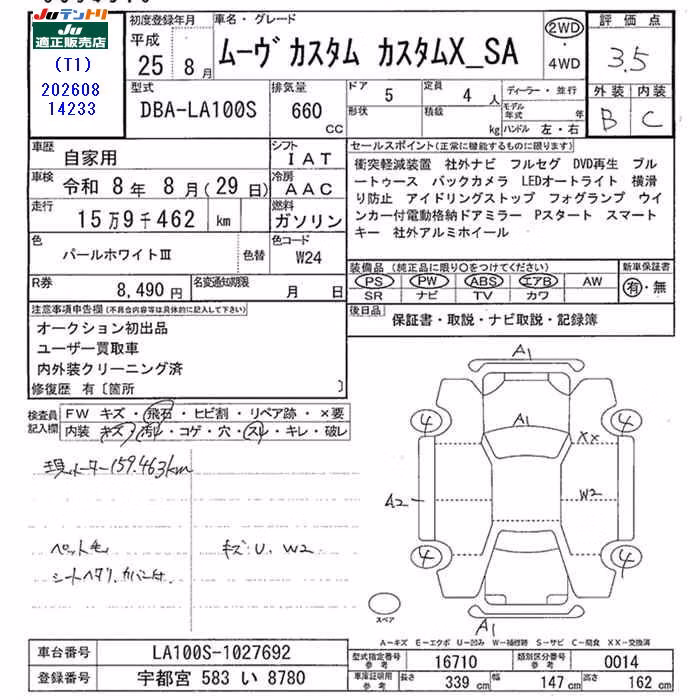 JUテントリ
JU
適正販売店
(T1)
202608
14233
初度登録年月
平成
25 8 月
車名・グレード
ムーヴ カスタム カスタムX_SA
2WD
・
4WD
評価点
3.5
型式
DBA-LA100S
排気量
660
CC
ドア
5
定員
4 人
形状
積載
kg
ディーラー・並行
モデル
年式 年
ハンドル 左・右
外装 内装
B C
車歴
自家用
シフト
IAT
車検
令和 8 年 8 月(29 日)
冷房
AAC
走行
15万9千462 km
燃料
ガソリン
色
パールホワイトⅢ
色替
色コード
W24
R券
8,490 円
名変通知期限
月 日
セールスポイント(正常に機能するものに限ります)
衝突軽減装置 社外ナビ フルセグ DVD再生 ブル
ートゥース バックカメラ LEDオートライト 横滑
り防止 アイドリングストップ フォグランプ ウイ
ンカー付電動格納ドアミラー Pスタート スマート
キー 社外アルミホイール
装備品(純正品に限り○をつけてください)
PS PW ABS エアB AW
SR ナビ TV カワ
新車保証書
有・無
後日品
保証書・取説・ナビ取説・記録簿
注意事項申告欄(不具合内容等は具体的に記入して下さい)
オークション初出品
ユーザー買取車
内外装クリーニング済
修復歴 有〔箇所 〕
検査員
記入欄
FW キズ・飛石・ヒビ割・リペア跡・×要
内装 キズ・汚れ・コゲ・穴・スレ・キレ・破レ
現メーター159.463km
ペット毛
キズ:U、W2
シートヘタリ、カバー付
A1
4
4
A1
XX
A2
W2
4
4
A1
スペア
A-キズ E-エクボ U-凹み W-補修跡 S-サビ C-腐食 XX-交換済
車台番号
LA100S-1027692
登録番号
宇都宮 583 い 8780
型式指定番号
参考
16710
類別区分番号
参考
0014
車庫証明用
参考
長さ
339 cm
幅
147 cm
高さ
162 cm